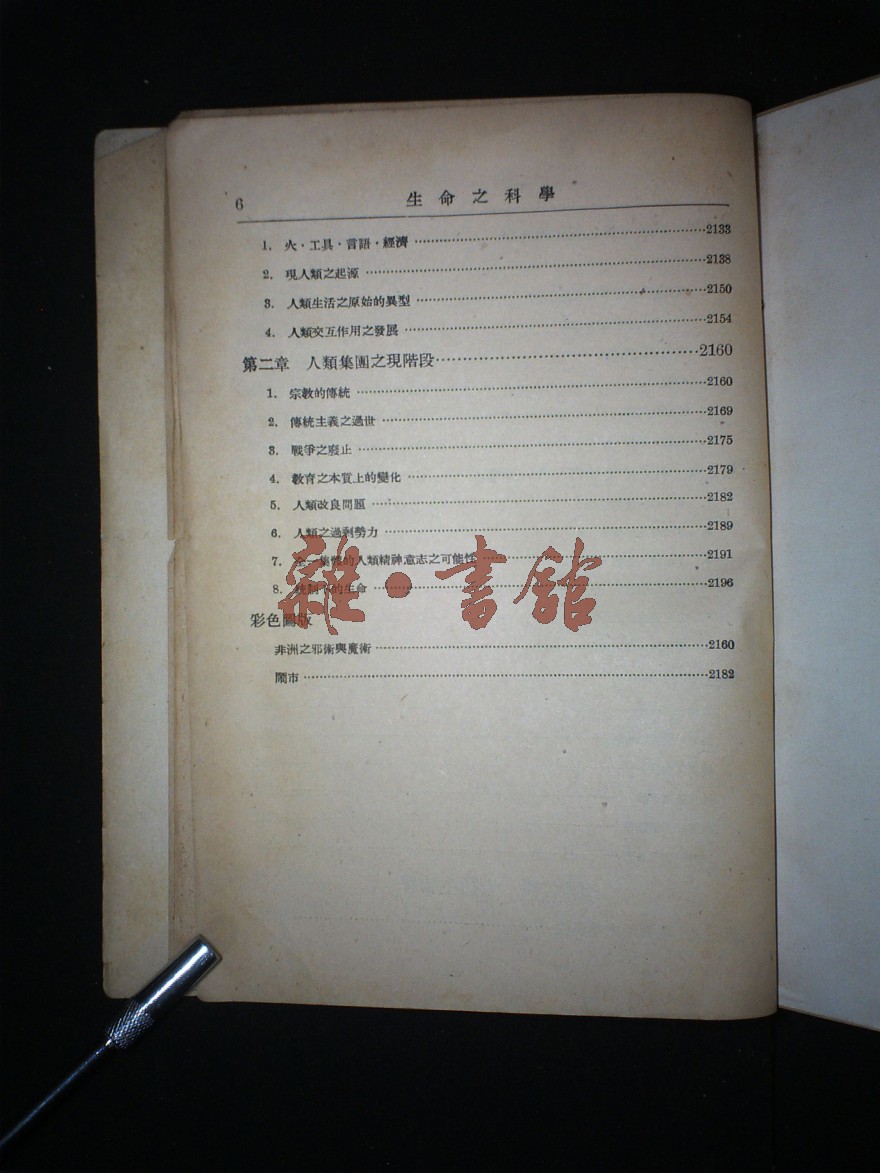 6 生命之科學
1. 火·工具·言語·經濟 2133
2. 現人類之起源 2138
3. 人類生活之原始的異型 2150
4. 人類交互作用之發展 2154
第二章 人類集團之現階段 2160
1. 宗教的傳統 2160
2. 傳統主義之過世 2169
3. 戰爭之廢止 2175
4. 教育之本質上的變化 2179
5. 人類改良問題 2182
6. 人類之過剩勢力 2189
7. 全一集體的人類精神意志之可能性 2191
8. 的生命 2196
彩色圖版
非洲之邪術與魔術 2160
鬧市 2182
雜·書館